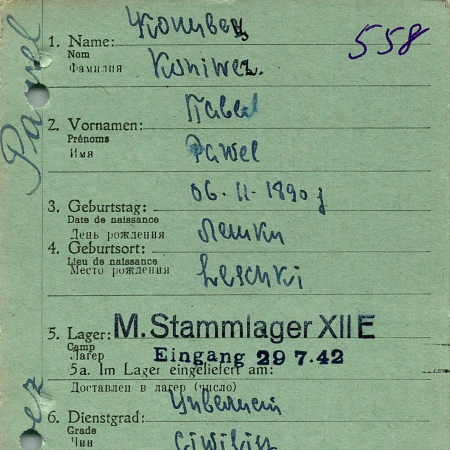 558
Конивец
1. Name:
Nom
Фамилия
Koniwez.
Павел
2. Vornamen:
Prénoms
Имя
Pawel
06. II. 1890 j
3. Geburtstag:
Date de naissance
День рождения
Лешки
4. Geburtsort:
Lieu de naissance
Место рождения
Leschki
5. Lager: M. Stammlager XII E
Camp
Лагер
Eingang 29 7.42
5a. Im Lager eingeliefert am:
Доставлен в лагер (число)
6. Dienstgrad:
Grade
Чин
Pawel